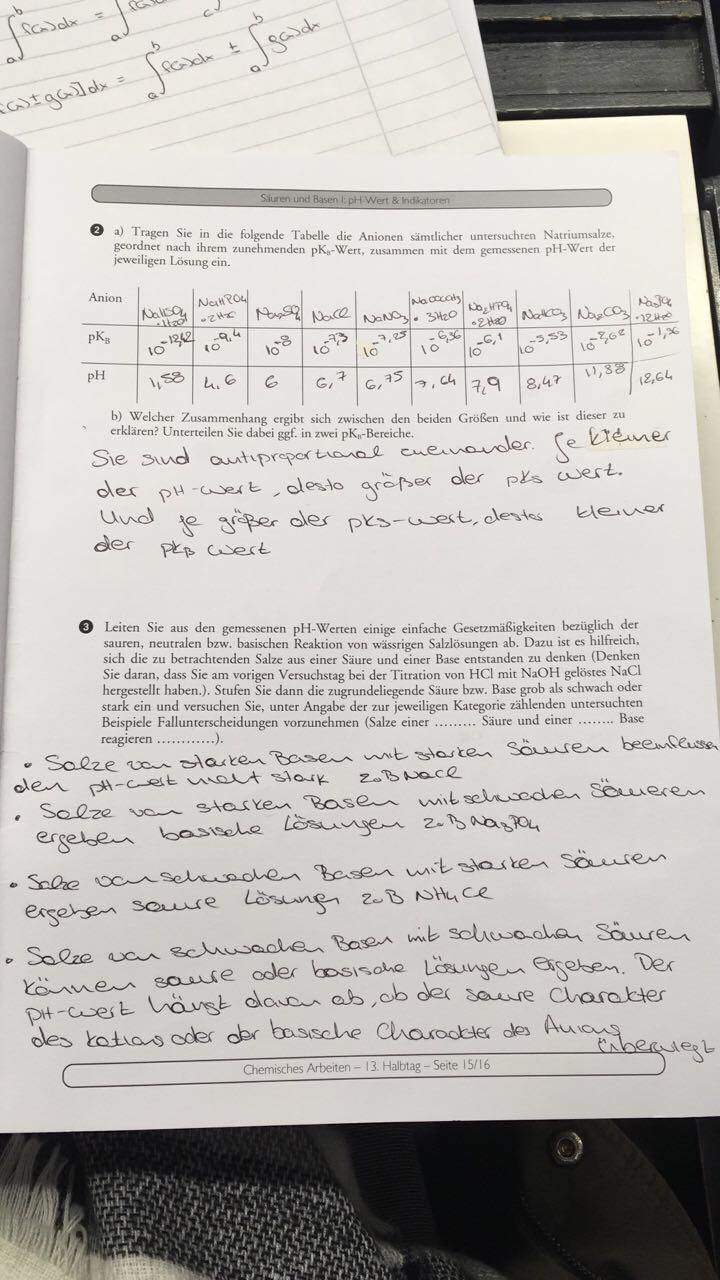 ∫ₐᵇ f(x)dx =
f(x) ± g(x)]dx = ∫ₐᵇ f(x)dx ± ∫ₐᵇ g(x)dx
Säuren und Basen I: pH-Wert & Indikatoren
2 a) Tragen Sie in die folgende Tabelle die Anionen sämtlicher untersuchten Natriumsalze,
geordnet nach ihrem zunehmenden pKB-Wert, zusammen mit dem gemessenen pH-Wert der
jeweiligen Lösung ein.
Anion NaHSO₄ · H₂O NaH₂PO₄ · 2H₂O Na₂SO₄ NaCl NaNO₃ NaOOCCH₃ · 3H₂O Na₂HPO₄ · 2H₂O NaHCO₃ Na₂CO₃ Na₃PO₄ · 12H₂O
pKB 10⁻¹²,⁴² 10⁻⁹,⁴ 10⁻⁸ 10⁻⁷,³ 10⁻⁷,²⁵ 10⁻⁶,³⁶ 10⁻⁶,¹ 10⁻⁵,⁵³ 10⁻²,⁶² 10⁻¹,³⁶
pH 1,58 4,6 6 6,7 6,75 7,64 7,9 8,47 11,38 12,64
b) Welcher Zusammenhang ergibt sich zwischen den beiden Größen und wie ist dieser zu
erklären? Unterteilen Sie dabei ggf. in zwei pKB-Bereiche.
Sie sind antiproportional zueinander. Je kleiner
der pH-Wert, desto größer der pKs Wert.
Und je größer der pKs-Wert, desto kleiner
der pKB Wert
3 Leiten Sie aus den gemessenen pH-Werten einige einfache Gesetzmäßigkeiten bezüglich der
sauren, neutralen bzw. basischen Reaktion von wässrigen Salzlösungen ab. Dazu ist es hilfreich,
sich die zu betrachtenden Salze aus einer Säure und einer Base entstanden zu denken (Denken
Sie daran, dass Sie am vorigen Versuchstag bei der Titration von HCl mit NaOH gelöstes NaCl
hergestellt haben.). Stufen Sie dann die zugrundeliegende Säure bzw. Base grob als schwach oder
stark ein und versuchen Sie, unter Angabe der zur jeweiligen Kategorie zählenden untersuchten
Beispiele Fallunterscheidungen vorzunehmen (Salze einer ......... Säure und einer ........ Base
reagieren ............).
• Salze von starken Basen mit starken Säuren beeinflussen
den pH-Wert nicht stark z.B NaCl
• Salze von starken Basen mit schwachen Säueren
ergeben basische Lösungen z.B Na₃PO₄
• Salze von schwachen Basen mit starken Säuren
ergeben saure Lösungen z.B NH₄Cl
• Salze von schwachen Basen mit schwachen Säuren
können saure oder basische Lösungen ergeben. Der
pH-Wert hängt davon ab, ob der saure Charakter
des Kations oder der basische Charakter des Anions
überwiegt
Chemisches Arbeiten – 13. Halbtag – Seite 15/16